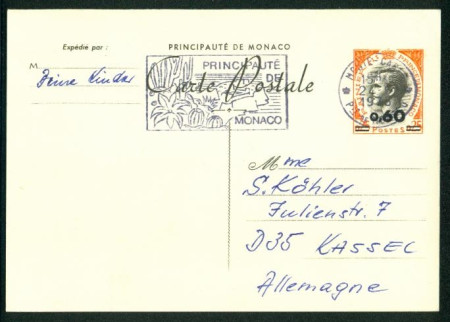 Expédié par :
PRINCIPAUTÉ DE MONACO
M
PRINCIPAUTÉ
DE
MONACO
Carte Postale
0,60
POSTES
Mme
S. Köhler
Julienstr. 7
D35 KASSEL
Allemagne